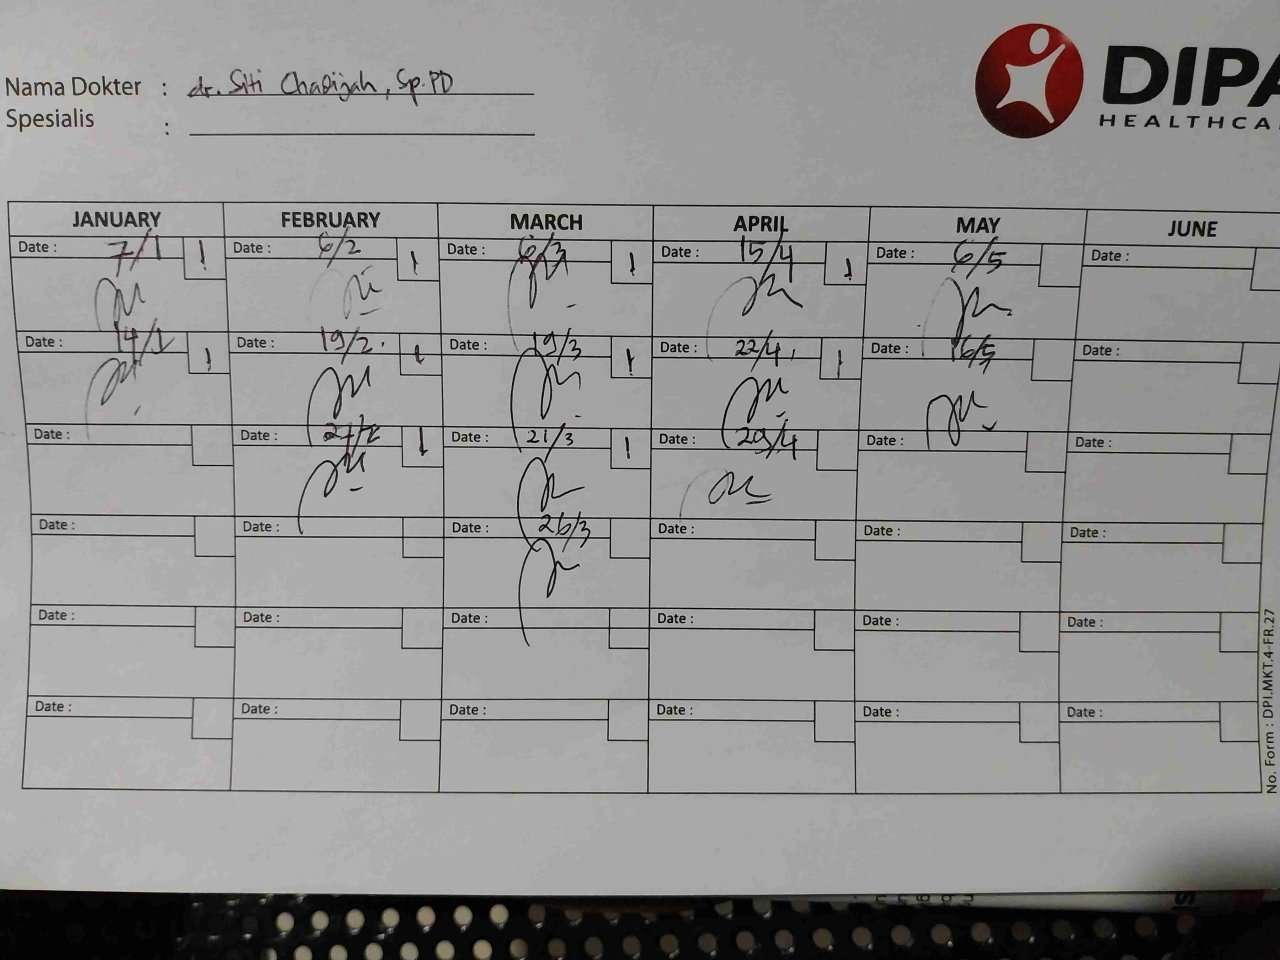 Nama Dokter : dr. Siti Chadijah, Sp.PD
Spesialis :
DIPA
HEALTHCA
JANUARY FEBRUARY MARCH APRIL MAY JUNE
Date : 7/1 1 Date : 6/2 1 Date : 6/3 1 Date : 15/4 1 Date : 6/5 Date :
Date : 14/1 1 Date : 19/2. 1 Date : 19/3 1 Date : 22/4, 1 Date : 16/5 Date :
Date : Date : 1 Date : 21/3 1 Date : 29/4 Date : Date :
Date : Date : Date : 26/3 Date : Date : Date :
Date : Date : Date : Date : Date : Date :
Date : Date : Date : Date : Date : Date :
No. Form : DPI.MKT.4-FR.27